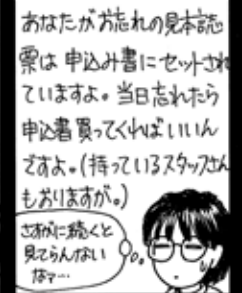 あなたがお忘れの見本誌
票は申込み書にセットされ
ていますよ。当日忘れたら
申込書買ってくればいいん
ですよ。(持っているスタッフさん
もおりますが。)
さすがに続くと
見てらんない
なァ…